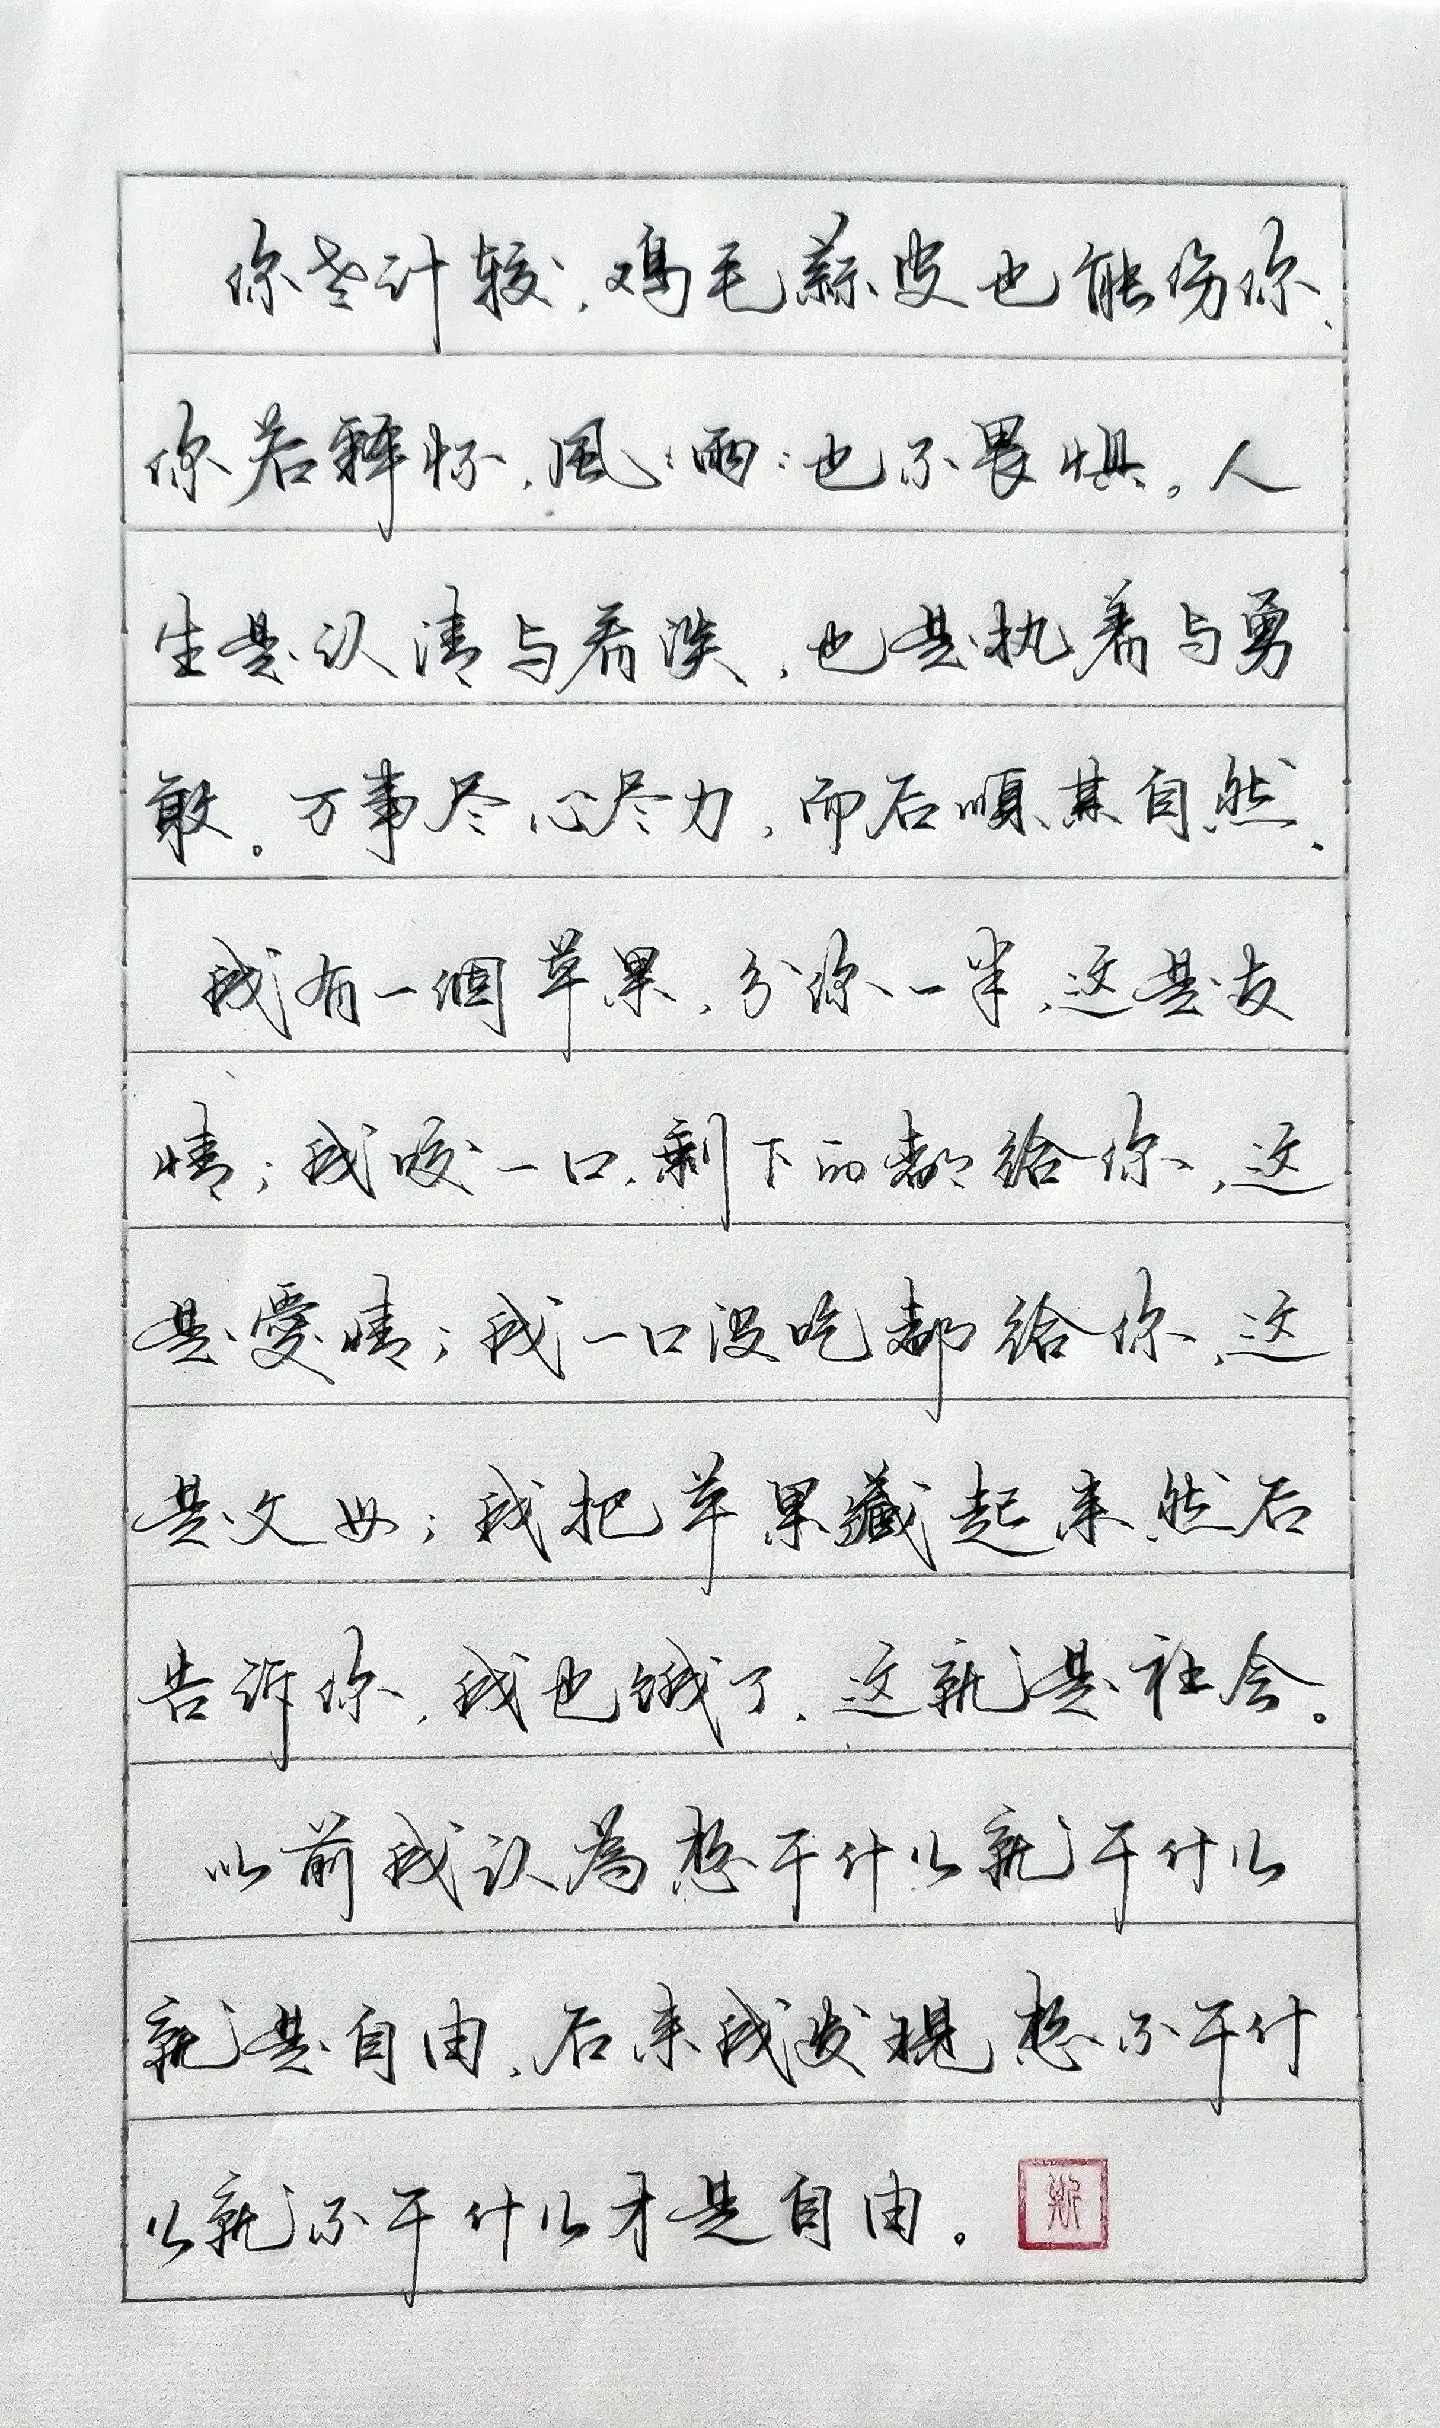 你若计较，鸡毛蒜皮也能伤你，
你若释怀，風風雨雨也不畏惧。人
生是认清与看淡，也是执着与勇
敢。万事尽心尽力，而后顺其自然。
我有一個苹果，分你一半，这是友
情；我咬一口，剩下的都给你，这
是愛情；我一口没吃都给你，这
是父母；我把苹果藏起来然后
告诉你，我也饿了，这就是社会。
以前我认为想干什么就干什么
就是自由，后来我发现想不干什
么就不干什么才是自由。